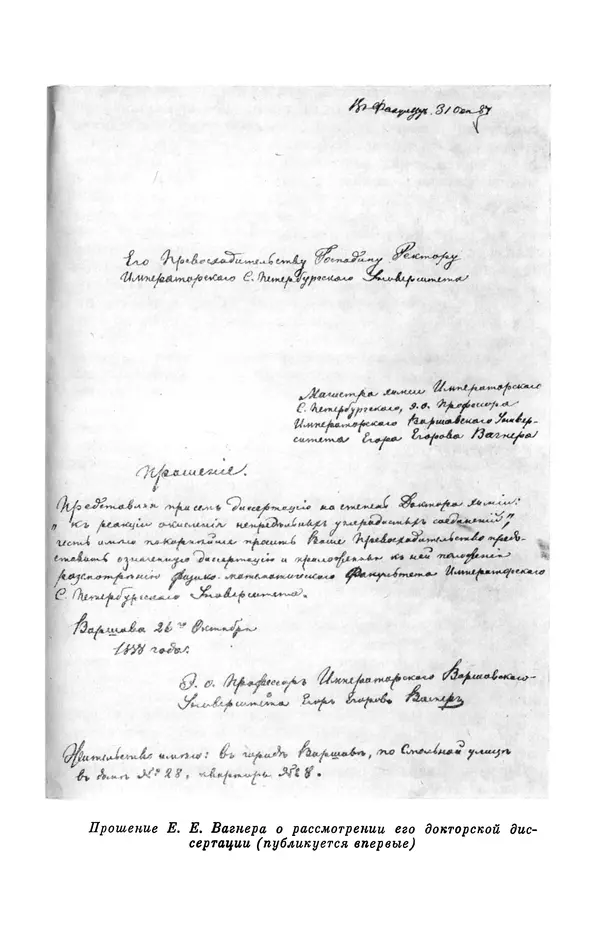 Въ Факульт. 31 Окт 87
Его Превосходительству Господину Ректору
Императорскаго С. Петербургскаго Университета
Магистра химіи Императорскаго
С. Петербургскаго, э.о. Профессора
Императорскаго Варшавскаго Универ-
ситета Егора Егорова Вагнера
Прошеніе.
Представляя при семъ диссертацію на степень Доктора химіи:
„Къ реакціи окисленія непредѣльныхъ углеродистыхъ соединеній",
честь имѣю покорнѣйше просить Ваше Превосходительство предо-
ставить означенную диссертацію и приложенныя къ ней положенія
разсмотрѣнію Физико-математическаго Факультета Императорскаго
С. Петербургскаго Университета.
Варшава 26го Октября
1888 года.
Э. о. Профессоръ Императорскаго Варшавскаго
Университета Егоръ Егоровъ Вагнеръ
Жительство имѣю: въ городѣ Варшавѣ, по улицѣ
въ домѣ № 28, квартира № 8.
Прошение Е. Е. Вагнера о рассмотрении его докторской дис-
сертации (публикуется впервые)